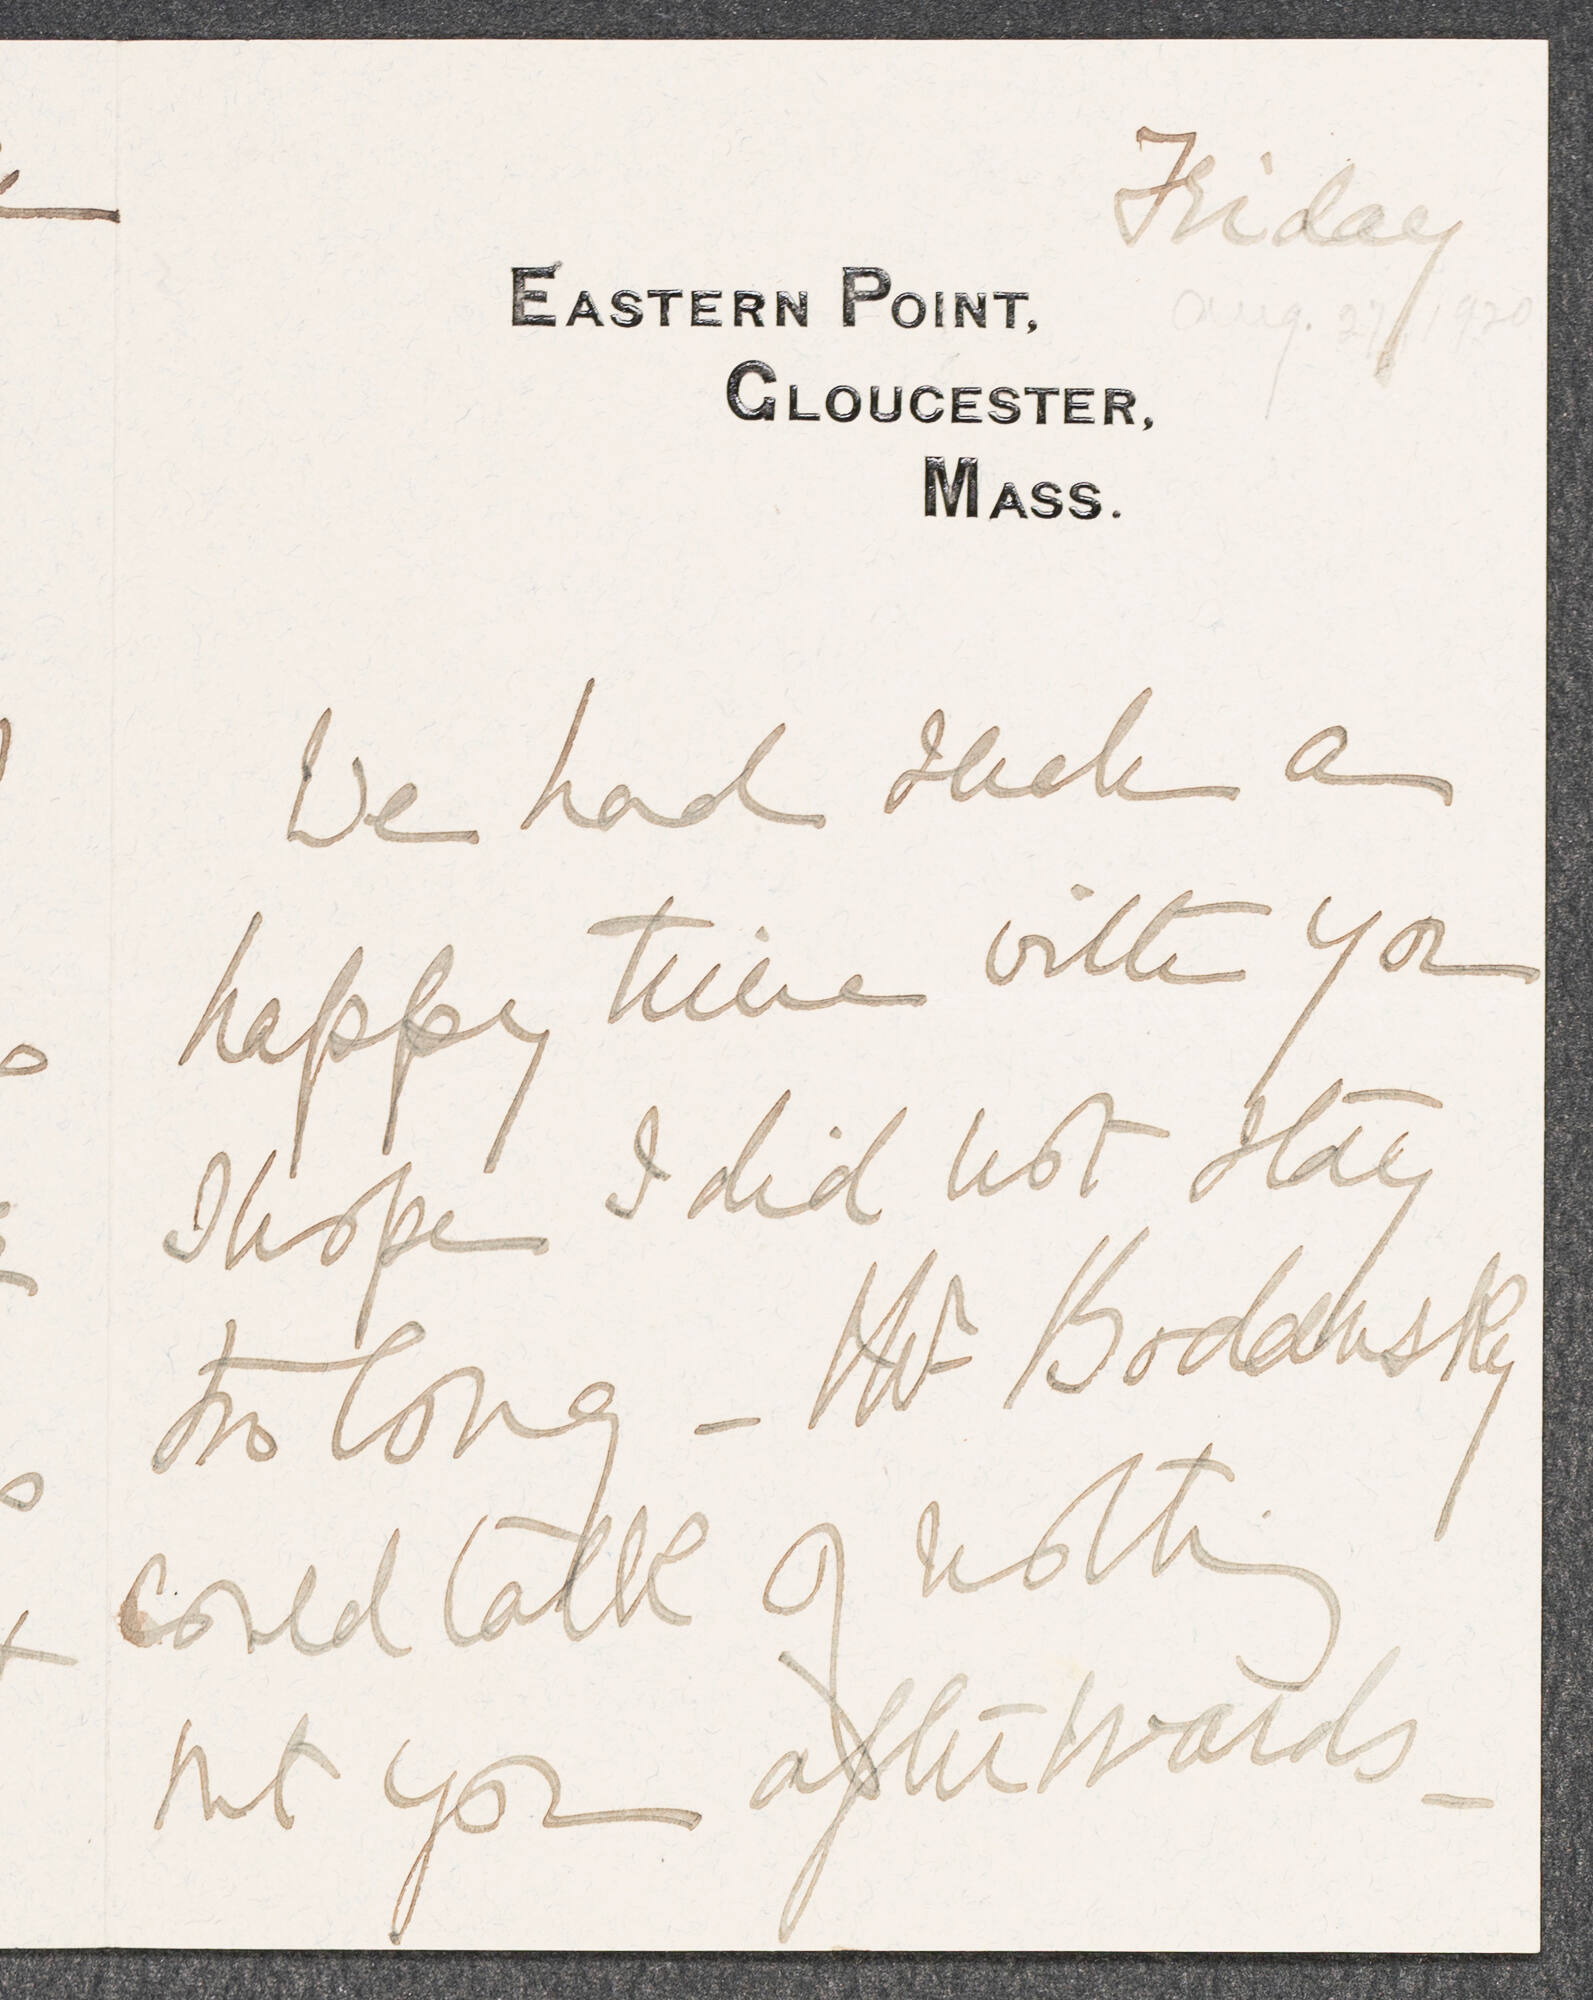 Friday
Aug. 27, 1920
EASTERN POINT,
GLOUCESTER,
MASS.
We had such a
happy time with you
I hope I did not stay
too long – Mr Bodansky
could talk of nothing
but you afterwards –